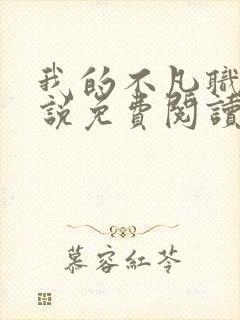 我的不凡職
說免費閱讀
慕容紅苓